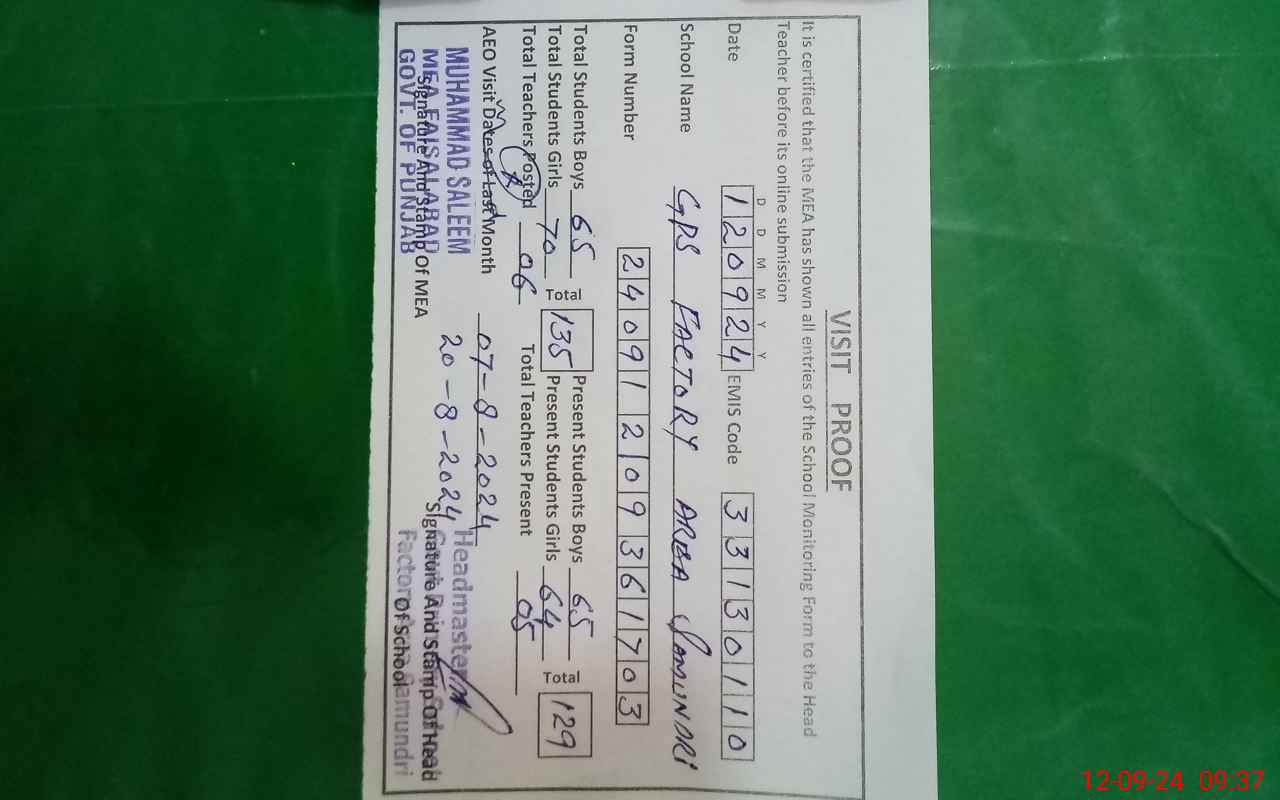 VISIT PROOF
It is certified that the MEA has shown all entries of the School Monitoring Form to the Head
Teacher before its online submission
D D M M Y Y
Date 120924 EMIS Code 33130110
School Name GPS FACTORY AREA SAMUNDRI
Form Number 24091209361703
Total Students Boys 65 Present Students Boys 65
Total Students Girls 70 Total 135 Present Students Girls 64 Total 129
Total Teachers Posted 06 Total Teachers Present 05
AEO Visit Dates of Last Month 07-8-2024
20-8-2024
MUHAMMAD SALEEM
MEA FAISALABAD
GOVT. OF PUNJAB
Signature And Stamp Of MEA
Headmaster
Signature And Stamp Of Head
Of School
Samundri
12-09-24 09:37